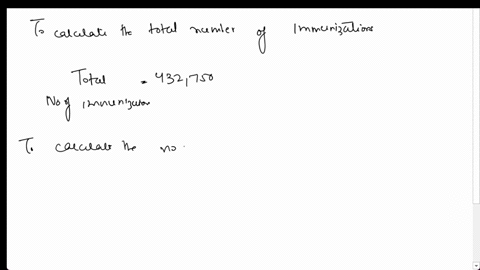 To calculate the total number of Immunizations
Total = 432,750
No of immunization
To calculate the no.